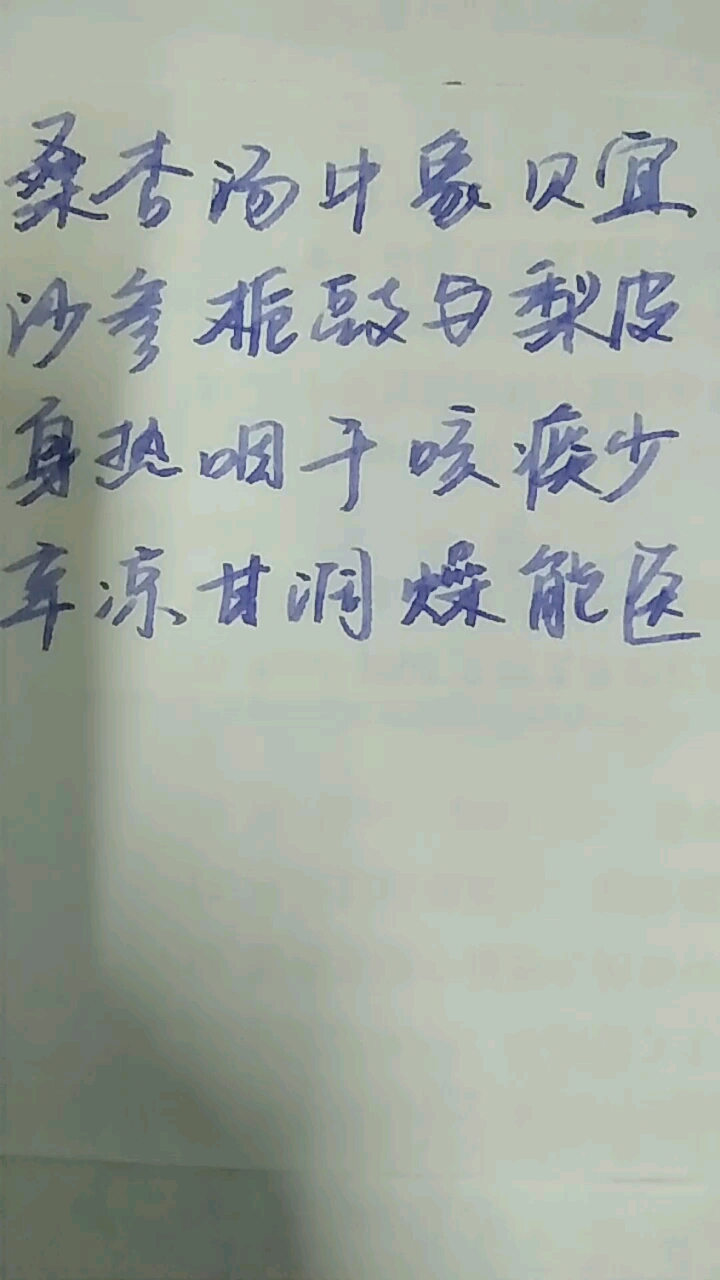 桑杏汤中象贝宜
沙参栀豉与梨皮
身热咽干咳痰少
辛凉甘润燥能医